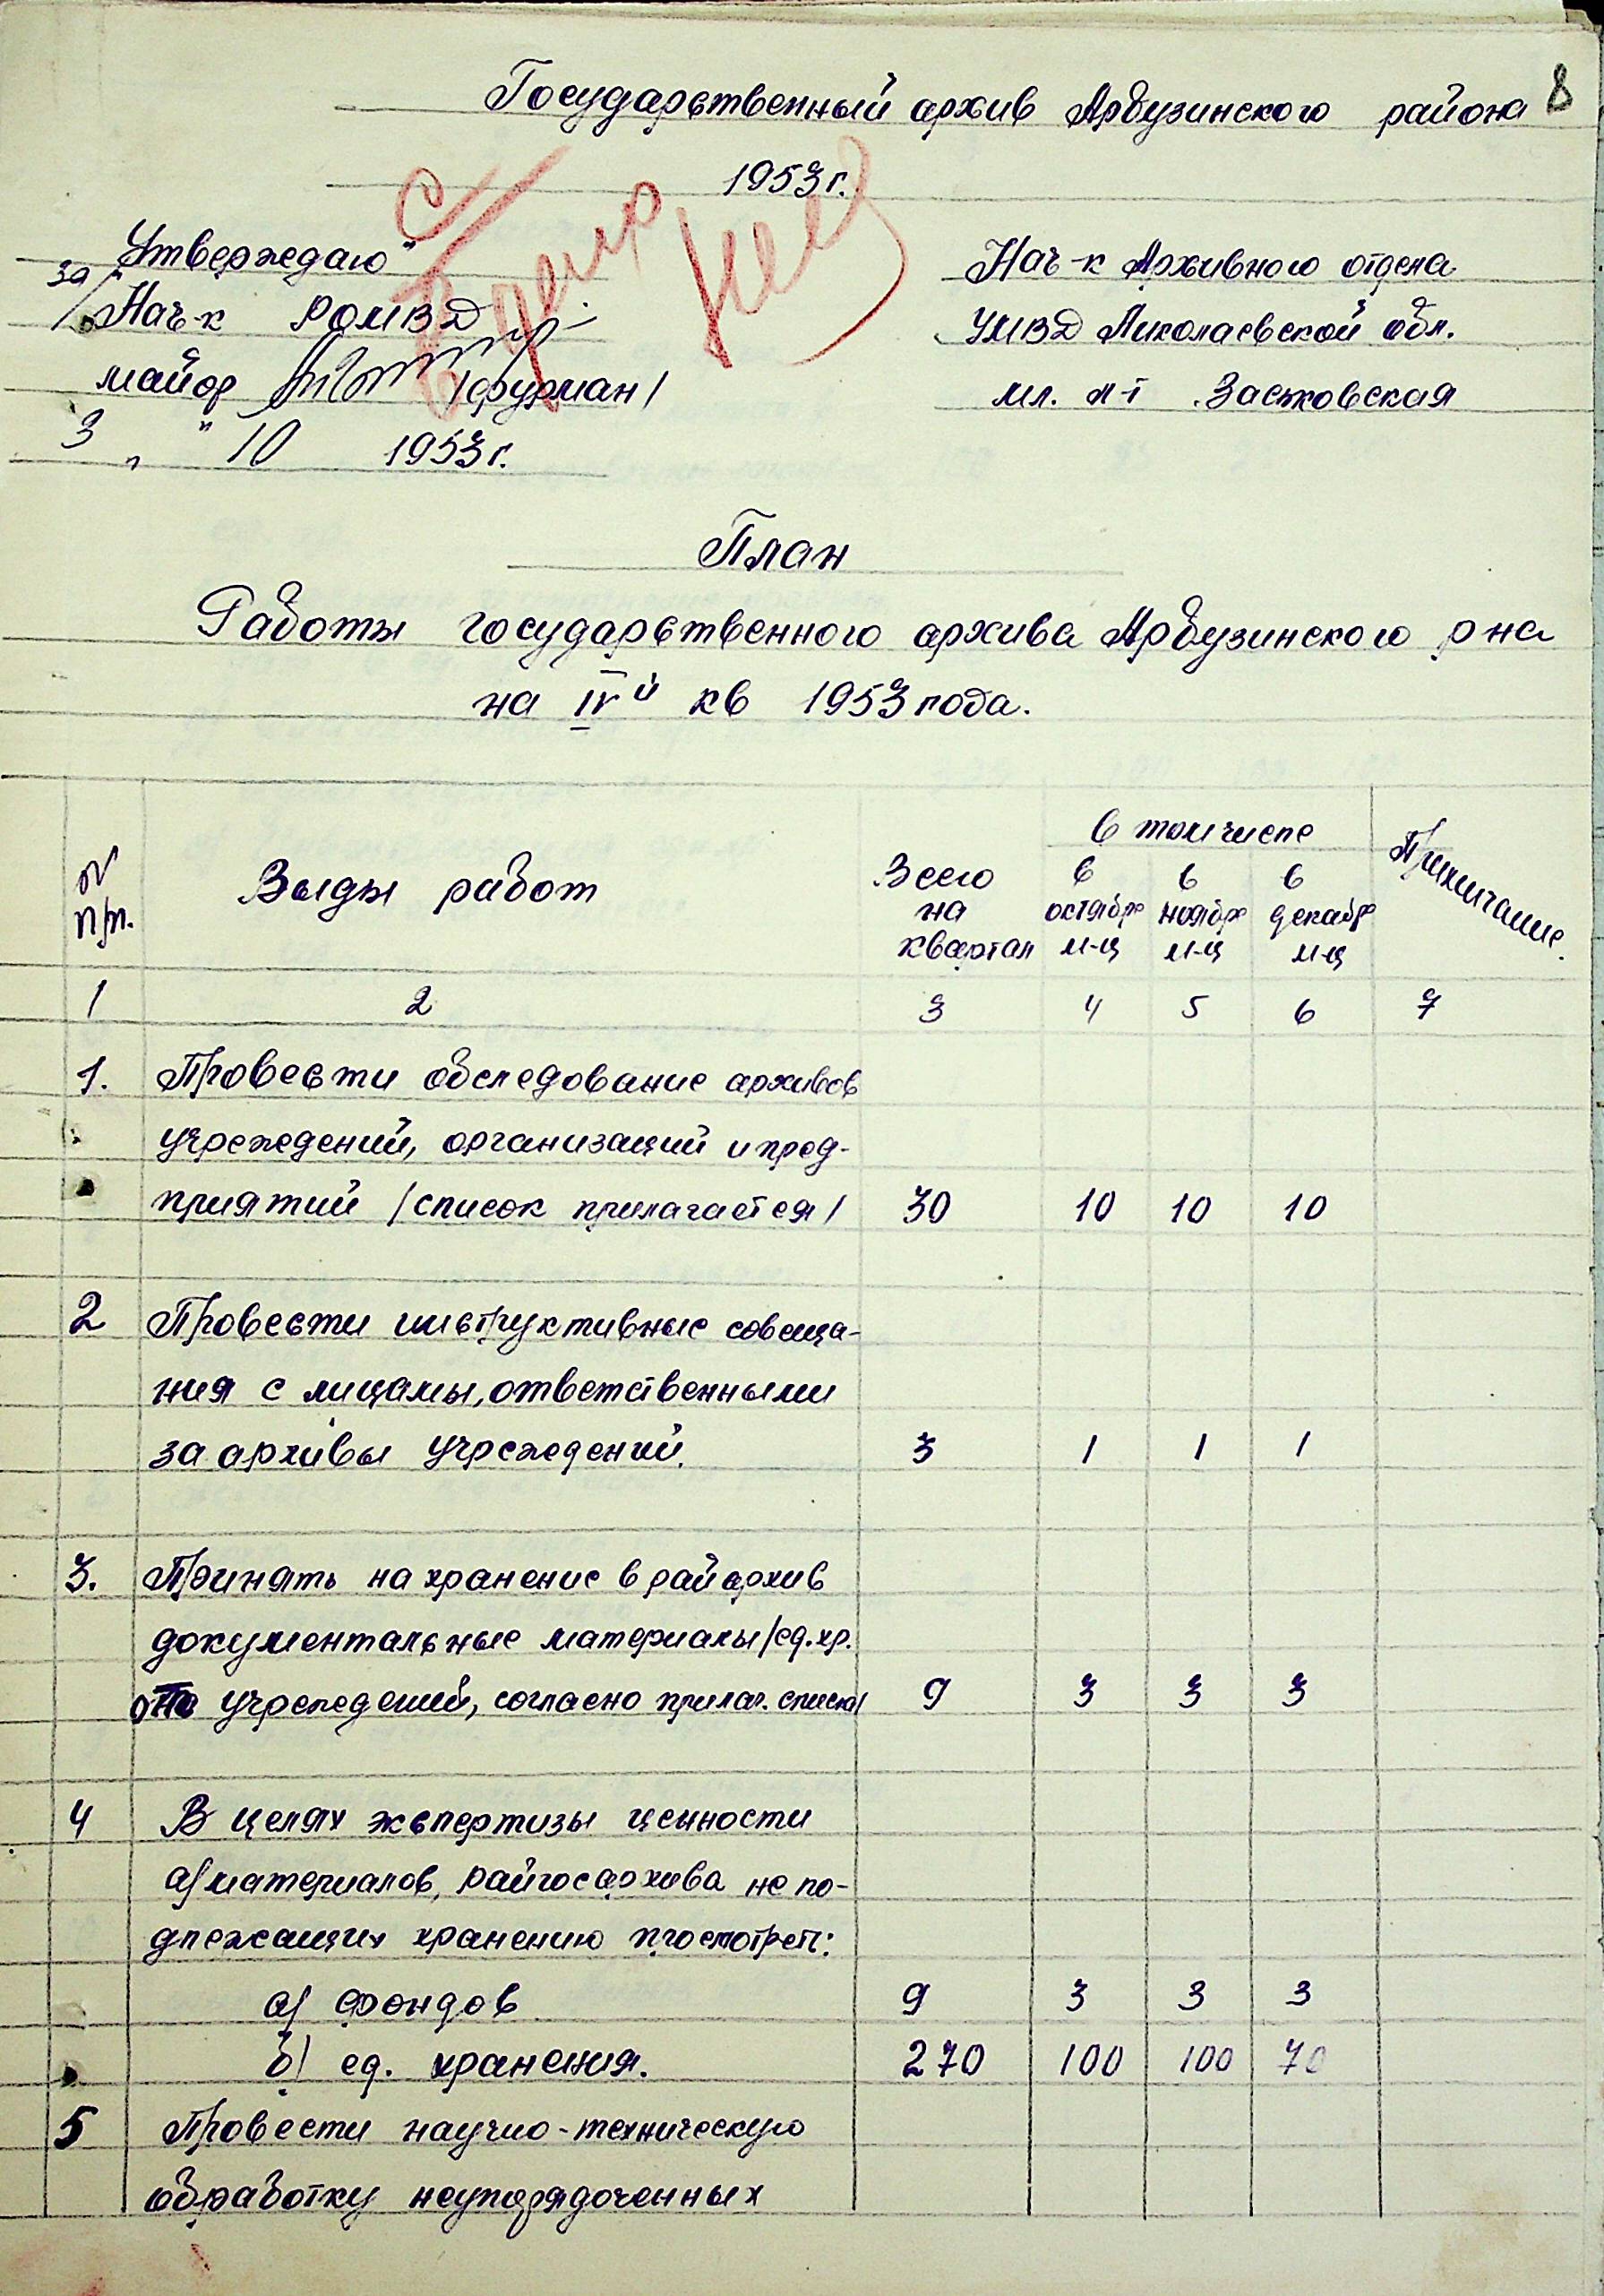 8
Государственный архив Арбузинского района
1953 г.
"Утверждаю"
за/Нач-к РОМВД
майор /Фурман/
3 " " 10 1953 г.
Нач-к Архивного отдела
УМВД Николаевской обл.
мл. л-т Заськовская
План
Работы государственного архива Арбузинского р на
на IVй кв 1953 года.
№ п/п. Выды работ Всего на квартал в том числе Примичание.
в октябре м-ц в ноябре м-ц в декабре м-ц
1 2 3 4 5 6 7
1. Провести обследование архивов
учреждений, организаций и пред-
приятий /список прилагается/ 30 10 10 10
2 Провести инструктивные совеща-
ния с лицамы, ответственными
за архивы учреждений. 3 1 1 1
3. Принять на хранение в райархив
документальные материалы /ед. хр.
от учреждений, согласно прилаг. списка/ 9 3 3 3
4 В целях экспертизы ценности
а/ материалов, райгосархива не по-
длежащих хранению просмотреть:
а/ фондов 9 3 3 3
б/ ед. хранения. 270 100 100 70
5 Провести научно-техническую
обработку неупорядоченных